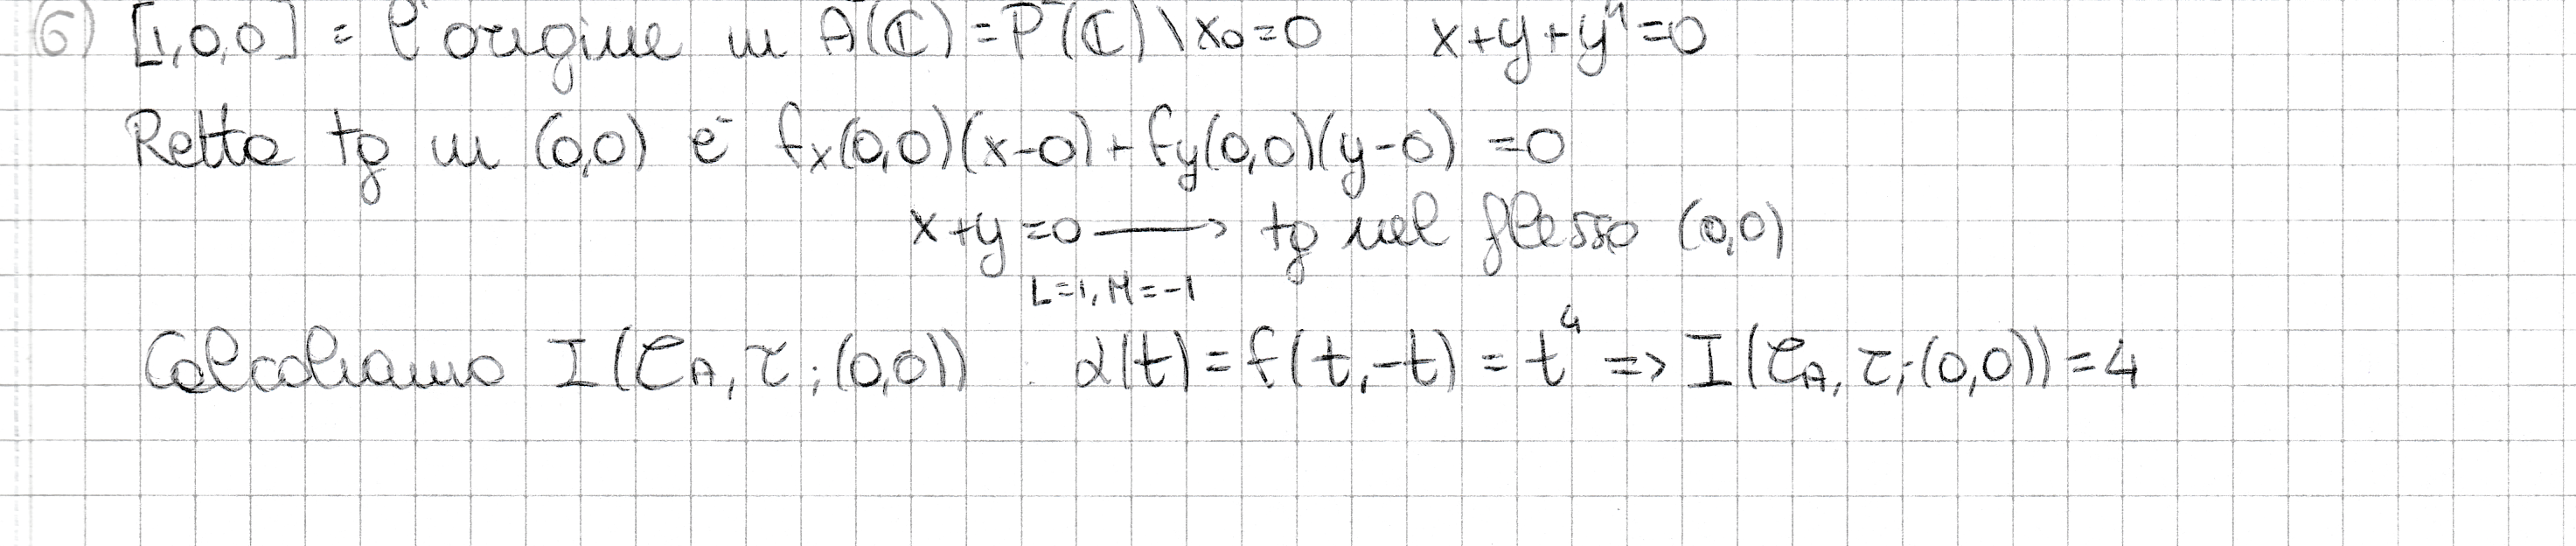 6) [1,0,0] = l'origine in A²(ℂ) = P²(ℂ) \ x₀=0 x+y+y⁴=0
Retta tg in (0,0) è fx(0,0)(x-0)+fy(0,0)(y-0) =0
x+y=0 → tg nel flesso (0,0)
L=1, M=-1
Calcoliamo I(𝒞A, τ; (0,0)) α(t) = f(t,-t) = t⁴ => I(𝒞A, τ; (0,0)) = 4